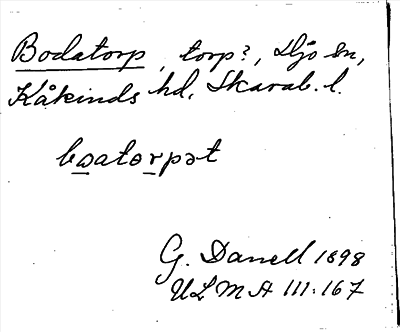 Bodatorp, torp?, Djö sn,
Kåkinds hd, Skarab. l.
boatorpət
G. Danell 1898
ULMA 111:167